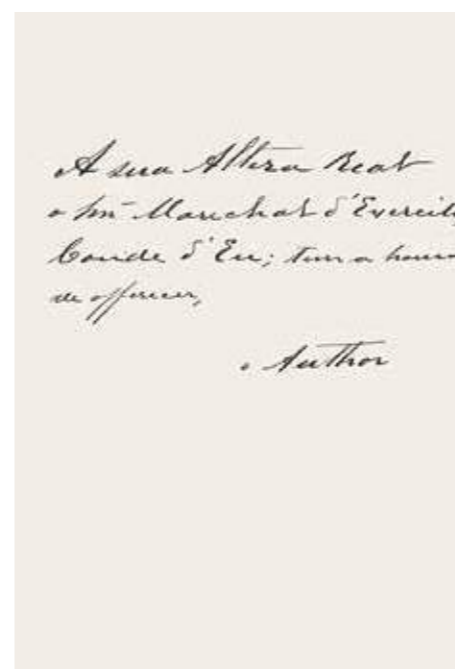 A sua Alteza Real
o Snr Marechal d'Exercito
Conde d'Eu; tem a honra
de offerecer,
o Author